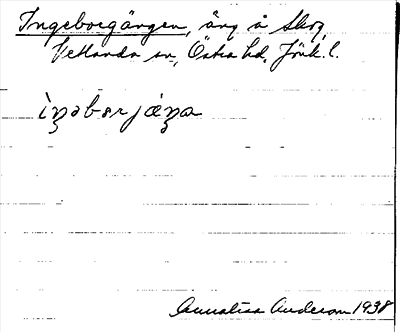 Ingeborgängen, äng å Skog
Vetlanda sn, Östra hd, Jönk. l.
ìŋəbɘrjæŋa
Annalisa Anderson 1938